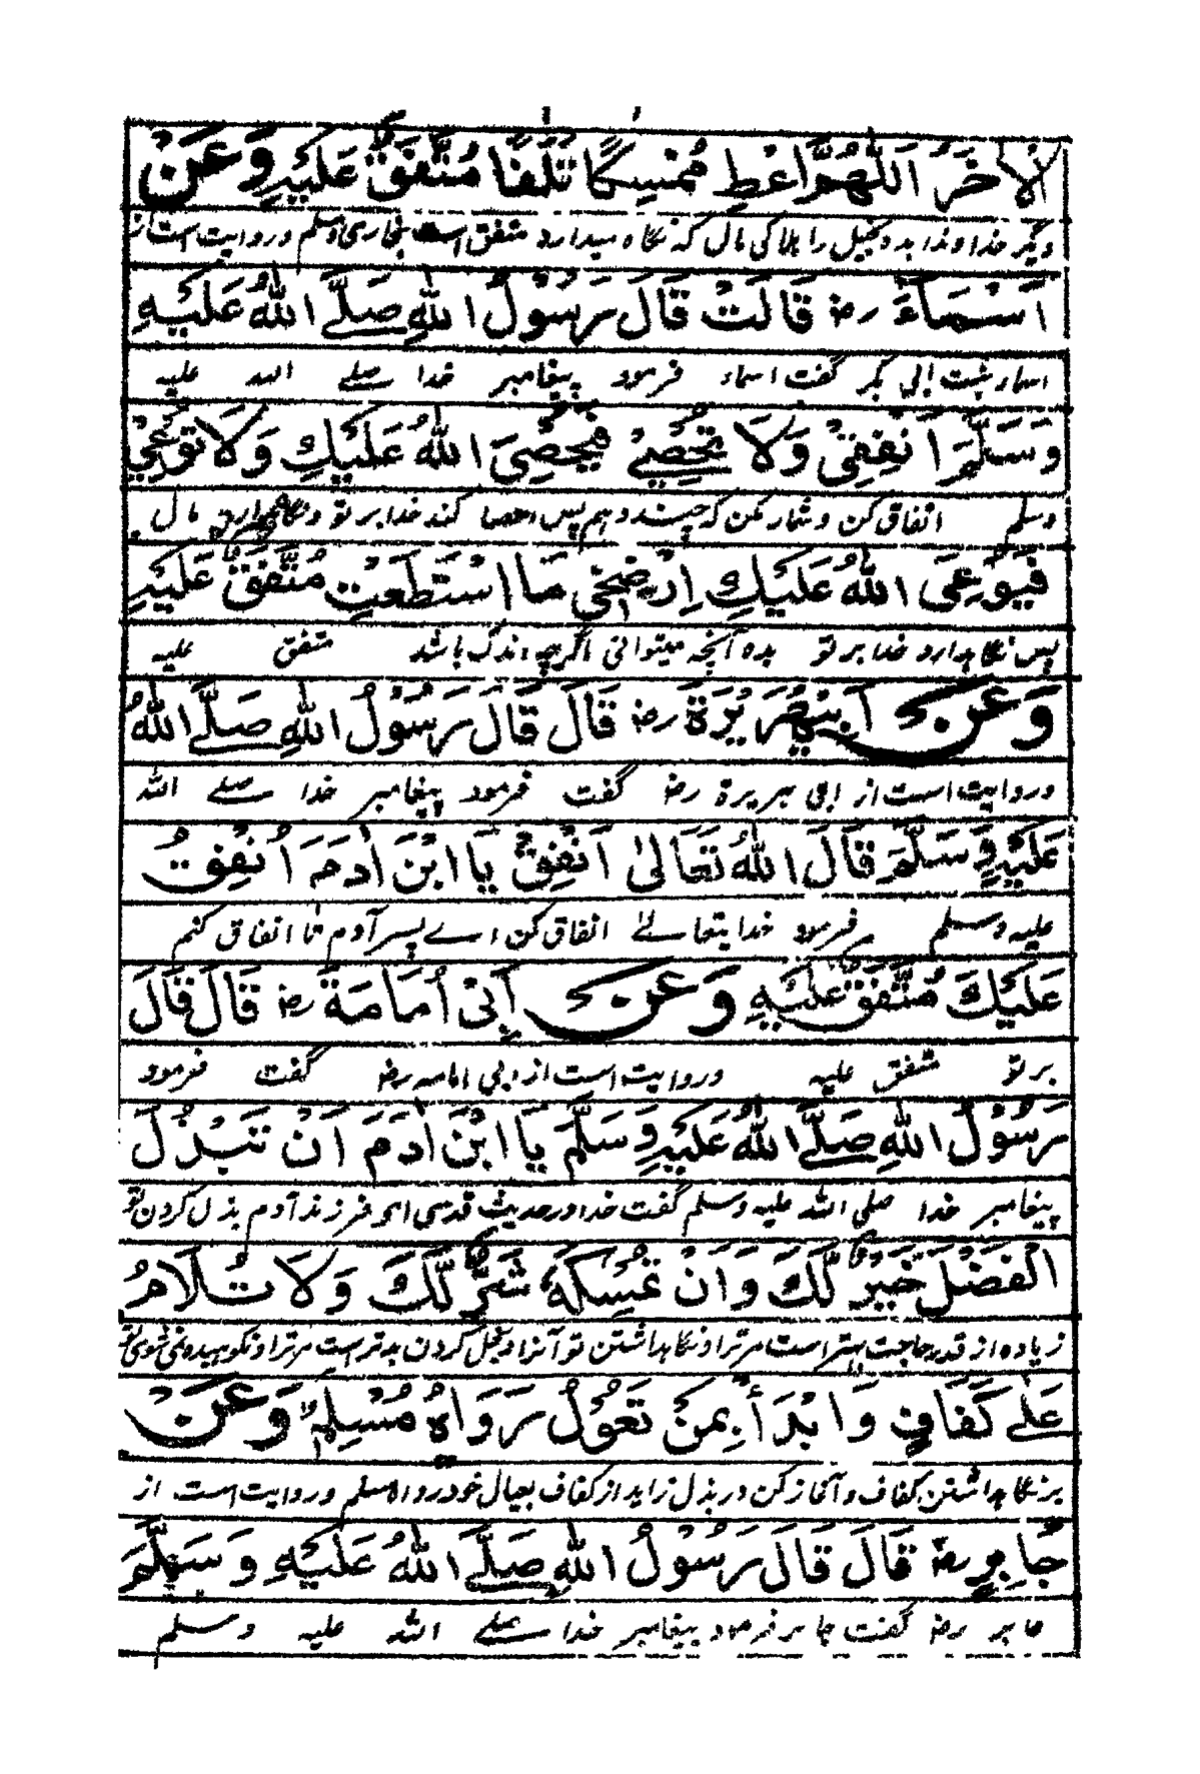 الْاٰخَرُ اَللّٰهُمَّ اَعْطِ مُمْسِكًا تَلَفًا مُتَّفَقٌ عَلَيْهِ وَعَنْ
دیگر خداوندا بده بخیل را ہلاکی مال که نگاه میدارد متفق است بخاری ومسلم و روایت است از
اَسْمَاءَ رض قَالَتْ قَالَ رَسُوْلُ اللهِ صَلَّے اللهُ عَلَيْهِ
اسماء بنت ابی بکر گفت اسماء فرمود پیغامبر خدا صلے الله علیه
وَسَلَّمَ اَنْفِقِیْ وَلَا تُحْصِیْ فَيُحْصِیَ اللهُ عَلَيْكِ وَلَا تُوْعِیْ
وسلم انفاق کن و شمار مکن که چند دهم پس احصا کند خدا بر تو و نگاه مدار مال
فَيُوْعِیَ اللهُ عَلَيْكِ اِرْضَخِیْ مَا اسْتَطَعْتِ مُتَّفَقٌ عَلَيْهِ
پس نگاہدارد خدا بر تو بده آنچه میتوانی اگرچه اندک باشد متفق علیه
وَعَنْ اَبِیْ هُرَيْرَةَ رض قَالَ قَالَ رَسُوْلُ اللهِ صَلَّے اللهُ
و روایت است از ابی ہریرة رض گفت فرمود پیغامبر خدا صلے الله
عَلَيْهِ وَسَلَّمَ قَالَ اللهُ تَعَالٰی اَنْفِقْ يَا ابْنَ اٰدَمَ اُنْفِقْ
علیه وسلم فرمود خدایتعالےٰ انفاق کن اے پسر آدم تا انفاق کنم
عَلَيْكَ مُتَّفَقٌ عَلَيْهِ وَعَنْ اَبِیْ اُمَامَةَ رض قَالَ قَالَ
بر تو متفق علیه و روایت است از ابی امامه رض گفت فرمود
رَسُوْلُ اللهِ صَلَّے اللهُ عَلَيْهِ وَسَلَّمَ يَا ابْنَ اٰدَمَ اَنْ تَبْذُلَ
پیغامبر خدا صلی الله علیه وسلم گفت خدا در حدیث قدسی ای فرزند آدم بذل کردن تو
الْفَضْلَ خَيْرٌ لَّكَ وَاَنْ تُمْسِكَهٗ شَرٌّ لَّكَ وَلَا تُلَامُ
زیاده از قدر حاجت بہتر است مر ترا و نگاہداشتن تو آنرا و بخل کردن بدتر است مر ترا و نکوہیده نمی شوی تو
عَلٰے كَفَافٍ وَابْدَأْ بِمَنْ تَعُوْلُ رَوَاهُ مُسْلِمٌ وَعَنْ
بر نگاہداشتن کفاف و آغاز کن در بذل زاید از کفاف بعیال خود رواه مسلم و روایت است از
جَابِرٍ رض قَالَ قَالَ رَسُوْلُ اللهِ صَلَّے اللهُ عَلَيْهِ وَسَلَّمَ
جابر رض گفت جابر فرمود پیغامبر خدا صلے الله علیه وسلم